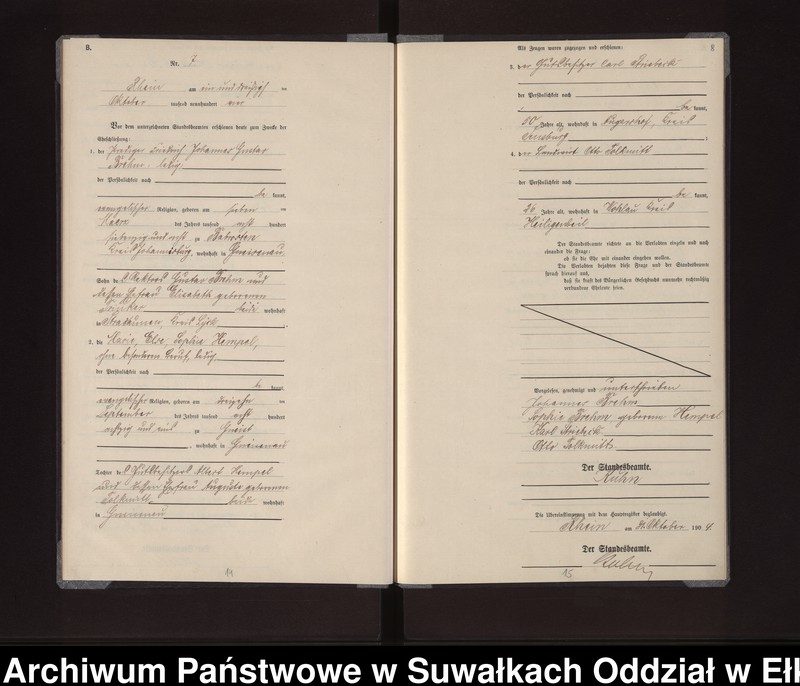 B.
Nr. 7
Rhein am ein und dreißigsten
Oktober tausend neunhundert vier
Vor dem unterzeichneten Standesbeamten erschienen heute zum Zwecke der
Eheschließung:
1. der Prediger Friedrich Johannes Gustav
Brehm, ledig,
der Persönlichkeit nach
be kannt,
evangelischer Religion, geboren am sieben
März des Jahres tausend acht hundert
siebenzig und acht zu
Kreis Johannisburg, wohnhaft in Gneisenau
Sohn des Gustav Brehm und
dessen Ehefrau Elisabeth geborenen
beide wohnhaft
in Stradaunen, Kreis Lyck.
2. die Marie, Else, Sophie Hempel,
ohne besonderen Beruf, ledig
der Persönlichkeit nach
be kannt,
evangelischer Religion, geboren am dreizehn
September des Jahres tausend acht hundert
achtzig und eins zu
, wohnhaft in Gneisenau
Tochter des Gutsbesitzers Albert Hempel
und dessen Ehefrau Auguste geborenen
Tolkmitt beide wohnhaft
in Gneisenau
14
Als Zeugen waren zugezogen und erschienen:
8
3. der Gutsbesitzer Carl Strieteck
der Persönlichkeit nach
be kannt,
50 Jahre alt, wohnhaft in Kreis
Sensburg
4. der Landwirt Otto Tolkmitt
der Persönlichkeit nach
be kannt,
26 Jahre alt, wohnhaft in Kreis
Heiligenbeil
Der Standesbeamte richtete an die Verlobten einzeln und nach
einander die Frage:
ob sie die Ehe mit einander eingehen wollen.
Die Verlobten bejahten diese Frage und der Standesbeamte
sprach hierauf aus,
daß sie kraft des Bürgerlichen Gesetzbuchs nunmehr rechtmäßig
verbundene Eheleute seien.
Vorgelesen, genehmigt und unterschrieben
Johannes Brehm
Sophie Brehm geborene Hempel
Karl Strieteck
Otto Tolkmitt
Der Standesbeamte.
Kuhn
Die Übereinstimmung mit dem Hauptregister beglaubigt.
Rhein am 31. Oktober 190 4.
Der Standesbeamte.
Kuhn
15
Archiwum Państwowe w Suwałkach Oddział w Eł